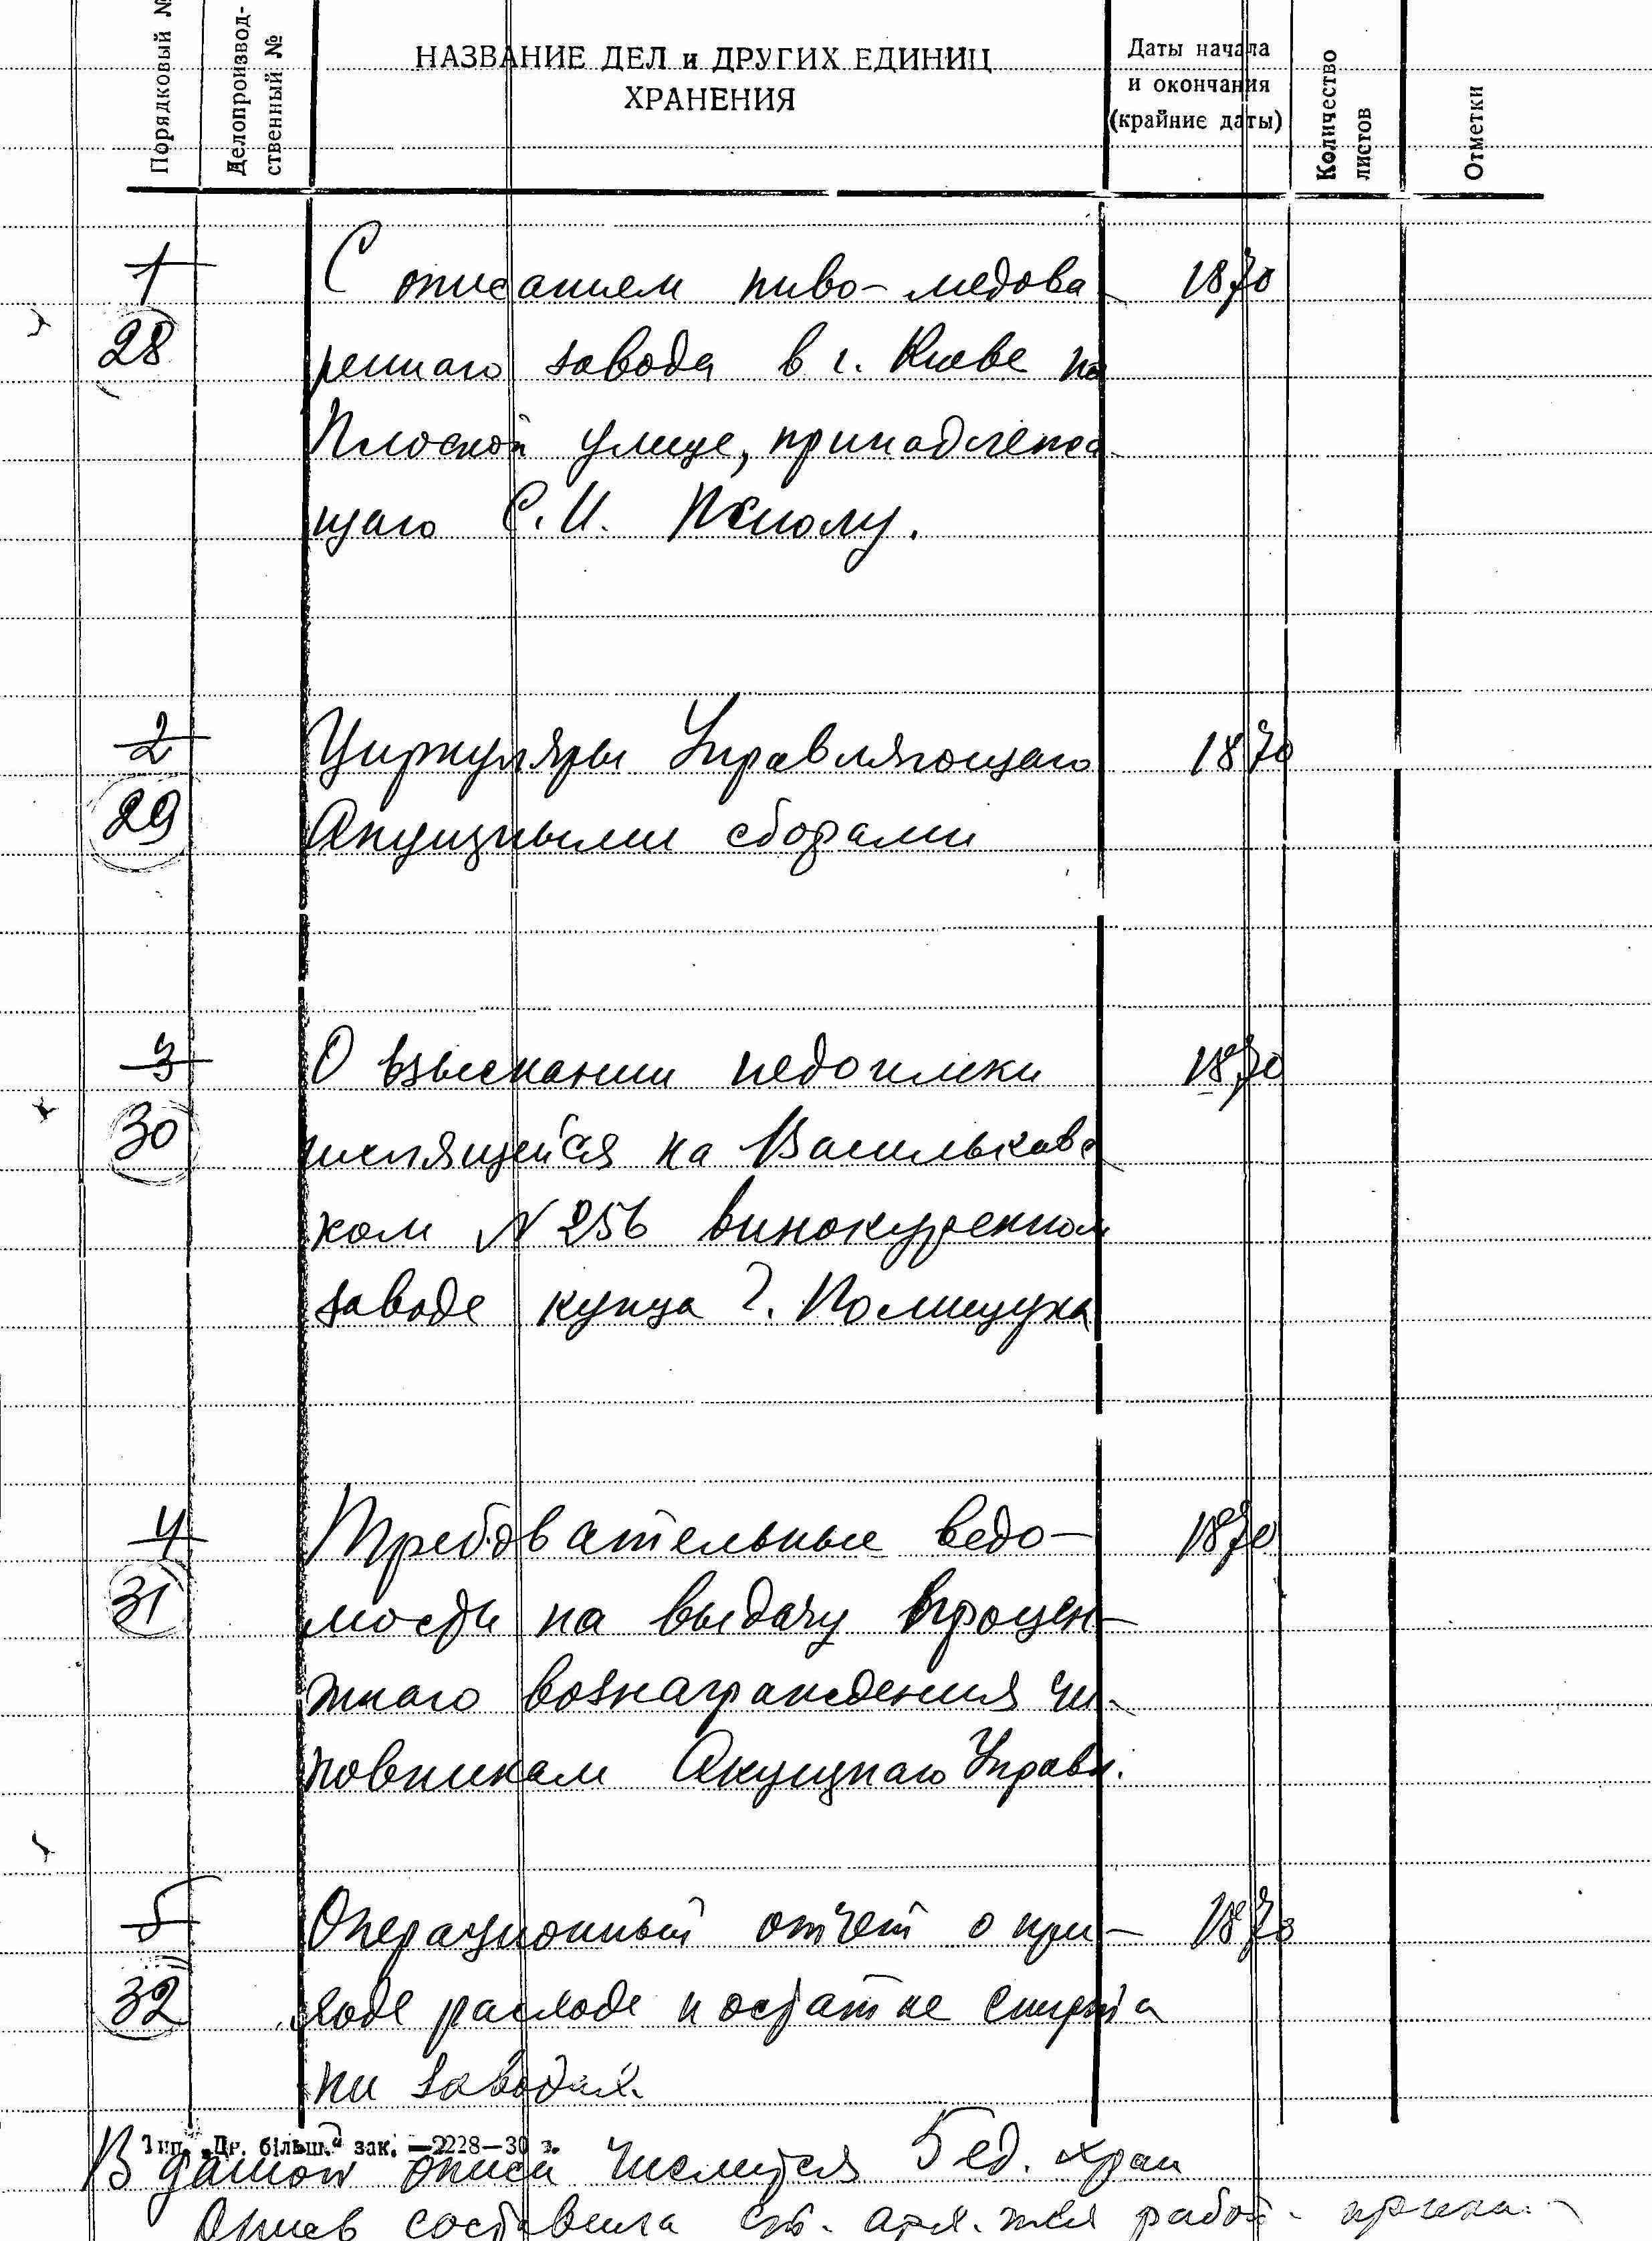 Порядковый №
Делопроизвод-
ственный №
НАЗВАНИЕ ДЕЛ и ДРУГИХ ЕДИНИЦ
ХРАНЕНИЯ
Даты начала
и окончания
(крайние даты)
Количество
листов
Отметки
1 С описанием пиво-медова 1870
28 реннаго завода в г. Киеве на
Плоской улице, принадлежа
щаго С.И.
2 Циркуляры Управляющаго 1870
29 Акцизными сборами
3 О взыскании недоимки 1870
30 числящейся на Васильковс
ком N 256 винокуренном
заводе купца Г. Полищука
4 Требовательные ведо- 1870
31 мости на выдачу процен-
тнаго вознаграждения чи-
новникам Акцизнаго Управл.
5 Операционный отчет о при- 1870
32 ходе расходе и остатке спирта
на заводах.
Тип. „Др. більш." зак. —2228—30 г.
В данной описи числится 5 ед. хран
Опись составила ст. арх. тех работ.